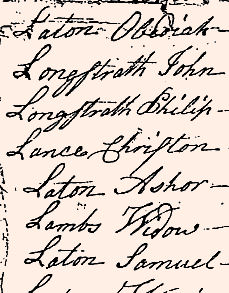 Laton Obediah
Longstrath John
Longstrath Philip
Lance Christon
Laton Ashor
Lambs Widow
Laton Samuel